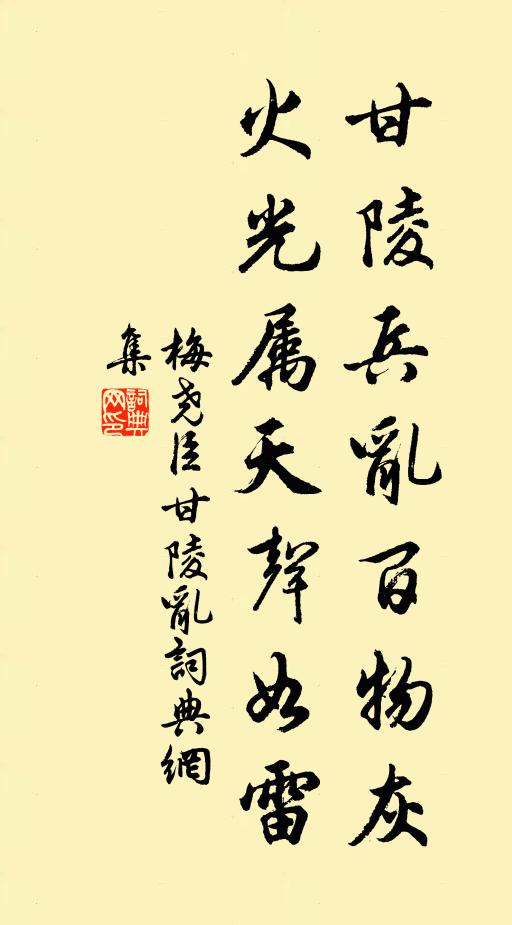 甘陵兵亂百物灰
火光属天聲如雷
梅堯臣甘陵亂詞典網
集
詞典
网印